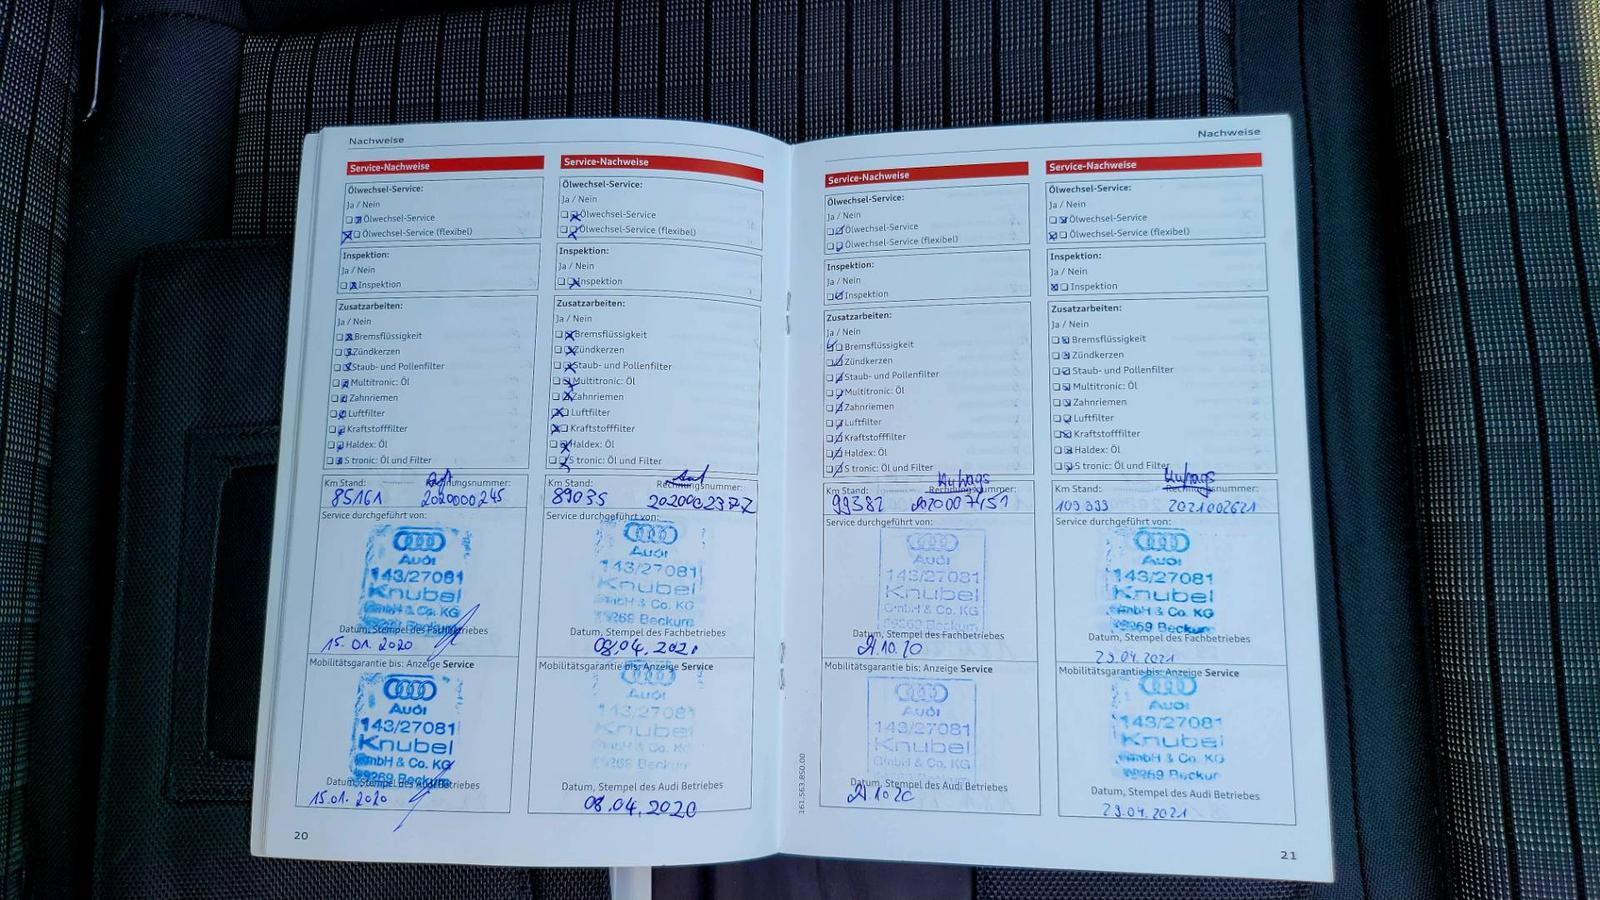 Nachweise
Service-Nachweise
Ölwechsel-Service:
Ja / Nein
Ölwechsel-Service
Ölwechsel-Service (flexibel)
Inspektion:
Ja / Nein
Inspektion
Zusatzarbeiten:
Ja / Nein
Bremsflüssigkeit
Zündkerzen
Staub- und Pollenfilter
Multitronic: Öl
Zahnriemen
Luftfilter
Kraftstofffilter
Haldex: Öl
S tronic: Öl und Filter
Km Stand:
85161 2020000245
Service durchgeführt von:
Audi
143/27081
Knubel
GmbH & Co. KG
59269 Beckum
Datum, Stempel des Fachbetriebes
15.01.2020
Mobilitätsgarantie bis: Anzeige Service
Audi
143/27081
Knubel
GmbH & Co. KG
59269 Beckum
Datum, Stempel des Audi Betriebes
15.01.2020
20
Service-Nachweise
Ölwechsel-Service:
Ja / Nein
Ölwechsel-Service
Ölwechsel-Service (flexibel)
Inspektion:
Ja / Nein
Inspektion
Zusatzarbeiten:
Ja / Nein
Bremsflüssigkeit
Zündkerzen
Staub- und Pollenfilter
Multitronic: Öl
Zahnriemen
Luftfilter
Kraftstofffilter
Haldex: Öl
S tronic: Öl und Filter
Km Stand: Rechnungsnummer:
89035
Service durchgeführt von:
Audi
143/27081
Knubel
GmbH & Co. KG
59269 Beckum
Datum, Stempel des Fachbetriebes
08.04.2020
Mobilitätsgarantie bis: Anzeige Service
Audi
143/27081
Knubel
GmbH & Co. KG
59269 Beckum
Datum, Stempel des Audi Betriebes
08.04.2020
Nachweise
Service-Nachweise
Ölwechsel-Service:
Ja / Nein
Ölwechsel-Service
Ölwechsel-Service (flexibel)
Inspektion:
Ja / Nein
Inspektion
Zusatzarbeiten:
Ja / Nein
Bremsflüssigkeit
Zündkerzen
Staub- und Pollenfilter
Multitronic: Öl
Zahnriemen
Luftfilter
Kraftstofffilter
Haldex: Öl
S tronic: Öl und Filter
Auftrags
Km Stand: Rechnungsnummer:
99382 2020007451
Service durchgeführt von:
Audi
143/27081
Knubel
GmbH & Co. KG
59269 Beckum
Datum, Stempel des Fachbetriebes
21.10.20
Mobilitätsgarantie bis: Anzeige Service
Audi
143/27081
Knubel
GmbH & Co. KG
59269 Beckum
Datum, Stempel des Audi Betriebes
21.10.20
161.563.850.00
Service-Nachweise
Ölwechsel-Service:
Ja / Nein
Ölwechsel-Service
Ölwechsel-Service (flexibel)
Inspektion:
Ja / Nein
Inspektion
Zusatzarbeiten:
Ja / Nein
Bremsflüssigkeit
Zündkerzen
Staub- und Pollenfilter
Multitronic: Öl
Zahnriemen
Luftfilter
Kraftstofffilter
Haldex: Öl
S tronic: Öl und Filter
Auftrags
Km Stand: Rechnungsnummer:
109999 2021002621
Service durchgeführt von:
Audi
143/27081
Knubel
GmbH & Co. KG
59269 Beckum
Datum, Stempel des Fachbetriebes
29.04.2021
Mobilitätsgarantie bis: Anzeige Service
Audi
143/27081
Knubel
GmbH & Co. KG
59269 Beckum
Datum, Stempel des Audi Betriebes
29.04.2021
21